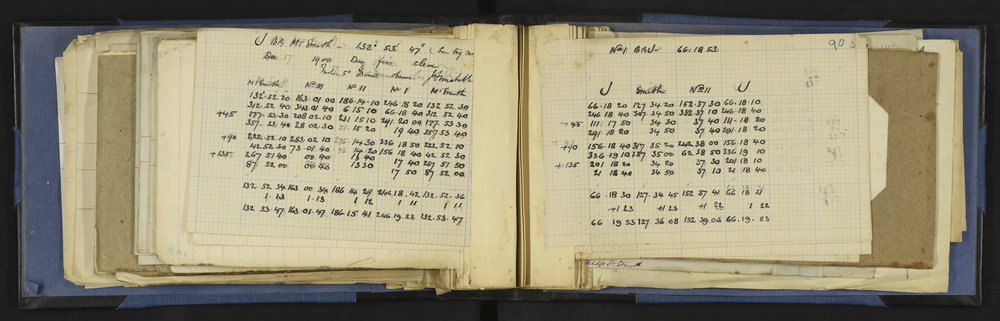 U Brg Mt Smith 132° 53' 47"
Dec 17 1900 Day fine clear
Mt Smith No III No II No I Mt Smith
132.52.20 163.01.00 186.14.10 246.18.20 132.52.30
312.52.40 343.01.40 6.15.10 66.18.40 312.52.40
+45 177.52.30 208.02.10 231.15.10 291.20.00 177.53.30
357.53.40 28.02.30 51.15.20 19 40 357 53 40
+90 222.52.10 253.02.10 276.14.30 336 18 50 222.52 10
42.52.30 73.01.40 96 14.20 156.18.40 42.52 30
+135 267 51 40 00 40 13 40 17 40 267 51 50
87 52 00 00 40 13 30 17 50 87 52 00
132.52.34 163 00 34 186 14 29 246.18.42 132.52.36
1.13 1.13 1 12 1 11 1 11
132 53.47 163.01.47 186.15 41 246 19.53 132.53.47
90
No I BRU 66.18 53
U Smith No II U
66.18 20 127 34 20 152.37 30 66.18.10
246 18 40 307 34 50 332 37 10 246 18 40
+45 111.17 50 34 30 37 40 111.18 20
291.18 20 34 50 37 40 291.18 20
+90 156.18 40 317 35 20 242 38 00 156 18 40
336 19 10 137 35 00 62 38 50 336 19 10
+135 201 18 20 34 20 37 30 201 18 10
21 18 40 34 50 37 10 21 18 40
66.18 30 127.34 45 152 37 41 66 18 31
+1 23 +1 23 +1 22 1 22
66 19 53 127 36 08 152 39.03 66.19.53